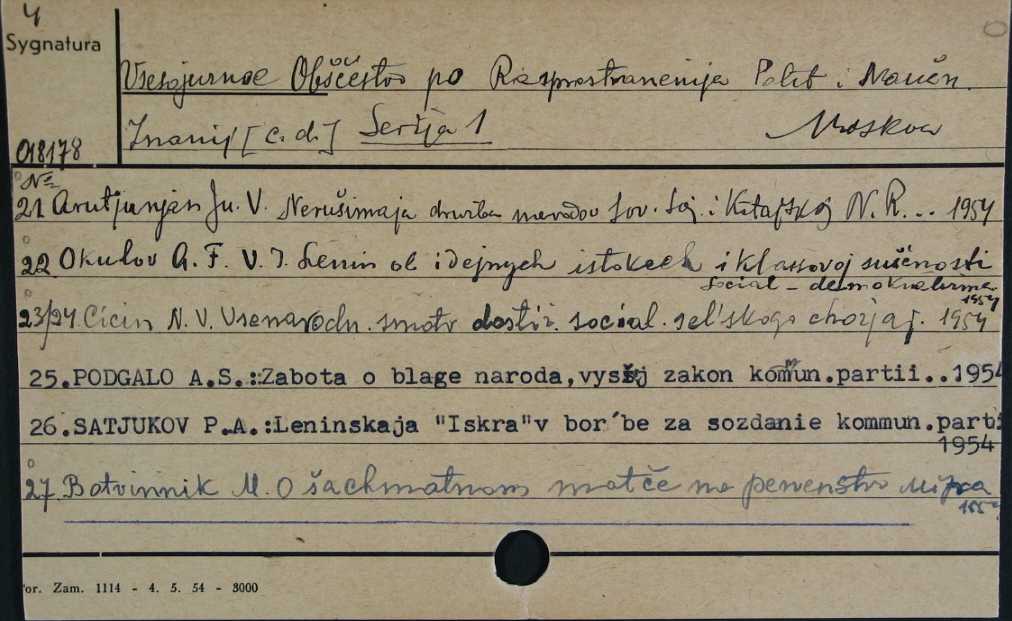 4
Sygnatura
Vsesojuznoe Obščestvo po Rasprostranenija Polit i Naučn.
018178
Znanij [c. d.] Serija 1 Moskva
No
21 Arutjunjan Ju. V. Nerušimaja družba narodov Sov. Soj. i Kitajskoj N. R... 1954
22. Okulov A. F. V. I. Lenin ob idejnych istokach i klassovoj suščnosti
social-demokratizma
1954
23/24. Cicin N. V. Vsenarodn. smotr dostiž. social. sel'skogo chozjaj. 1954
25.PODGALO A.S.:Zabota o blage naroda,vysšij zakon kommun.partii..1954
26.SATJUKOV P.A.:Leninskaja "Iskra"v bor'be za sozdanie kommun.parti
1954
27. Botvinnik M. O šachmatnom matče na pervenstvo mira
1954
or. Zam. 1114 - 4. 5. 54 - 3000